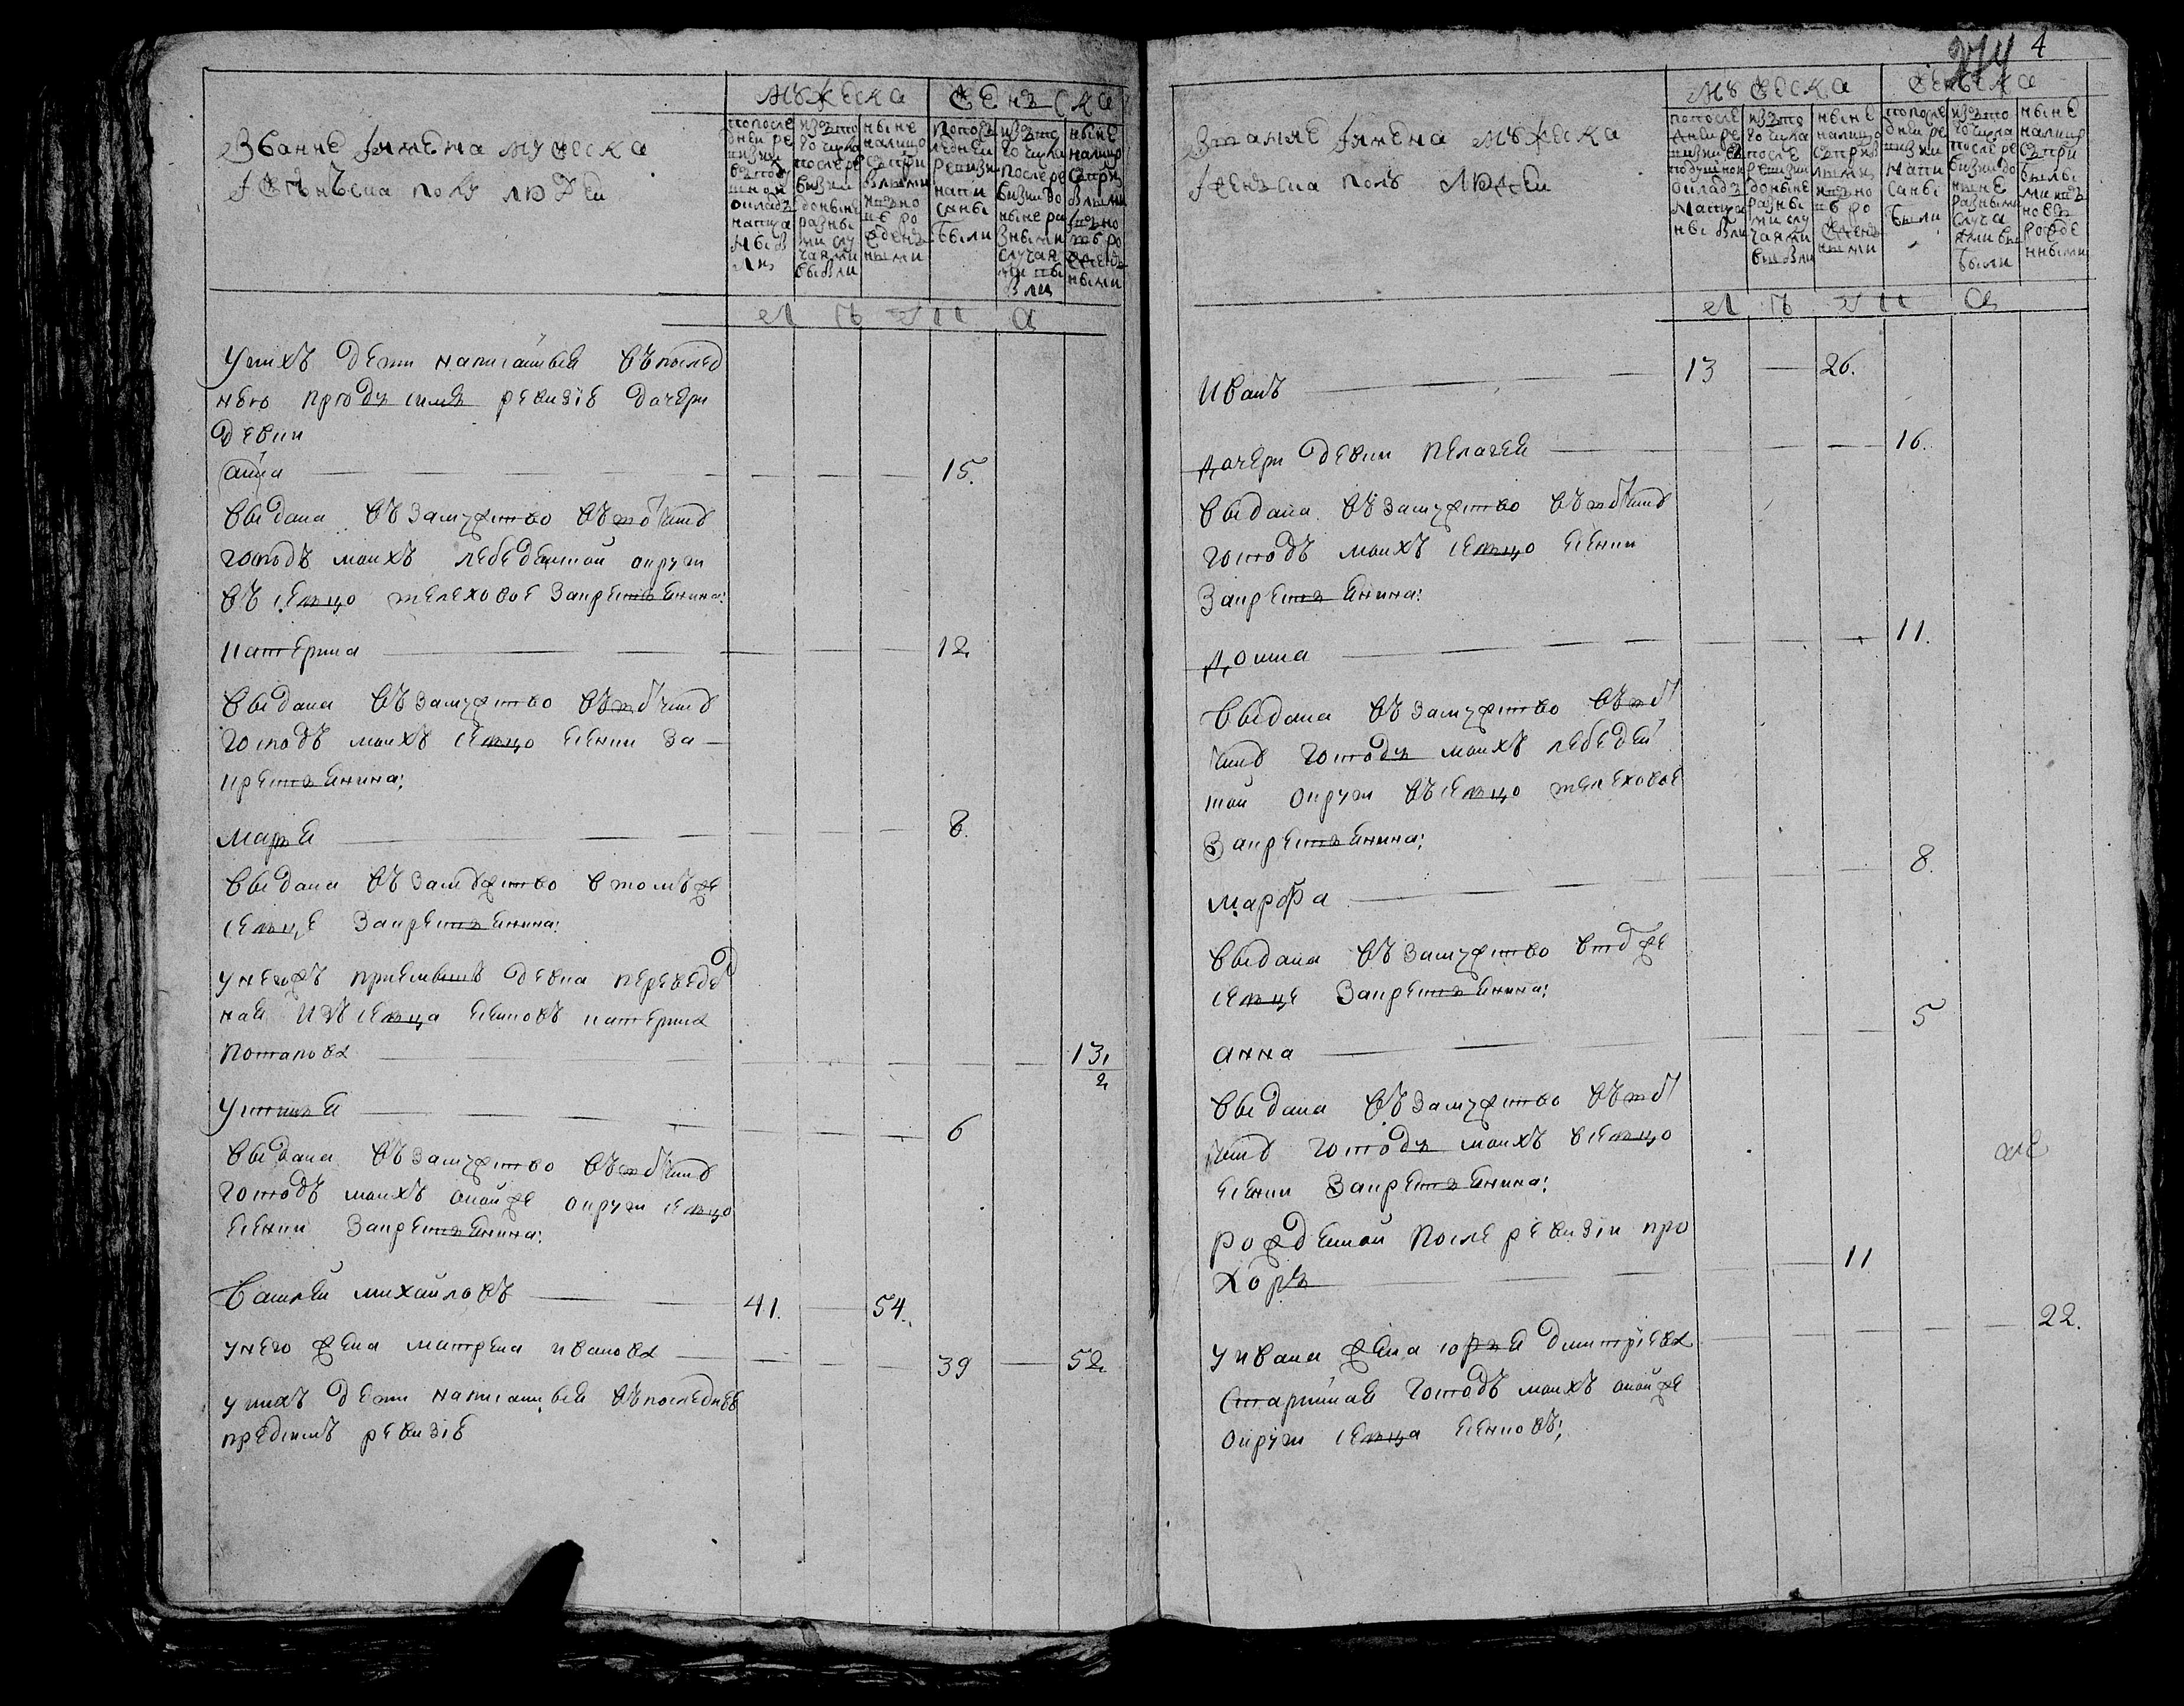 Звание Iимена мужеска
Iженъска полу людей
мужеска
женъска
по последней ревизии в подушной окладъ написаны были
изъ того числа после ревизии доныне разными случаями выбыли
ныне налицо съ прибылыми и вновь рожденными
по последней ревизии написаны были
изъ того числа после ревизии доныне разными случаями выбыли
ныне налицо съ прибылыми и вновь рожденными
лѣта
У нихъ дети написанные въ послед
нею предъ симъ ревизiю дочери
девки
15.
выдана въ замужство въ вотчину
господъ моихъ лебедянской округи
въ сельцо телеховое за крестьянина:
Катерина 12
выдана въ замужство въ вотчину
господъ моихъ сельцо за
крестьянина:
Марья 8.
выдана въ замужство в томъ же
сельце за крестьянина:
У него жъ приемышъ девка переведен
ная изъ сельца катерина
Потапова 13/2
Устинья 6
выдана въ замужство въ вотчину
господъ моихъ оной же округи сельцо
за крестьянина:
Василей михайловъ 41. 54.
У него жена матрена иванова 39 52
У нихъ дети написанныя въ последнею
предсимъ ревизiю
4
Звание Iимена мужеска
Iженъска полъ людей
мужеска
женъска
по последней ревизии въ подушной окладъ написаны были
изъ того числа после ревизии доныне разными случаями выбыли
ныне налицо съ прибылыми и вновь рожденными
по последней ревизии написаны были
изъ того числа после ревизии доныне разными случаями выбыли
ныне налицо съ прибылыми и вновь рожденными
лѣта
Иванъ 13 26.
Дочери девки Пелагея 16.
выдана въ замужство въ вотчину
господъ моихъ сельцо
за крестьянина:
11.
выдана въ замужство въ вот
чину господъ моихъ лебедян
ской округи въ сельцо телеховое
за крестьянина:
Марфа 8.
выдана въ замужство в том же
сельце за крестьянина:
анна 5
выдана въ замужство въ вот
чину господъ моихъ в сельцо
за крестьянина:
рожденой после ревизiи про
хоръ 11
У ивана жена дмитрiева 22.
старинная господъ моихъ оной же
округи сельца